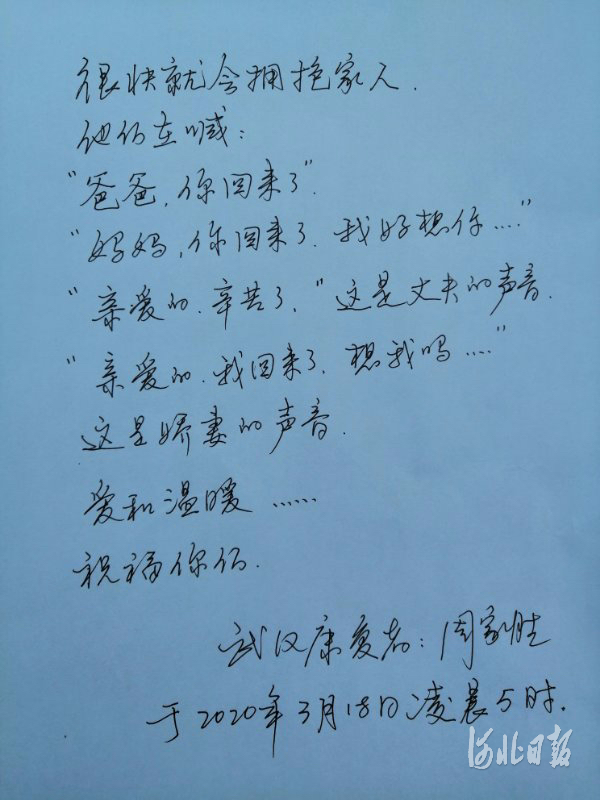 很快就会拥抱家人.
他们在喊:
“爸爸,你回来了”.
“妈妈,你回来了.我好想你....”
“亲爱的.辛苦了,”这是丈夫的声音.
“亲爱的.我回来了,想我吗....”
这是娇妻的声音.
爱和温暖......
祝福你们.
武汉康复者:周家胜
于2020年3月18日凌晨5时.
河北日报